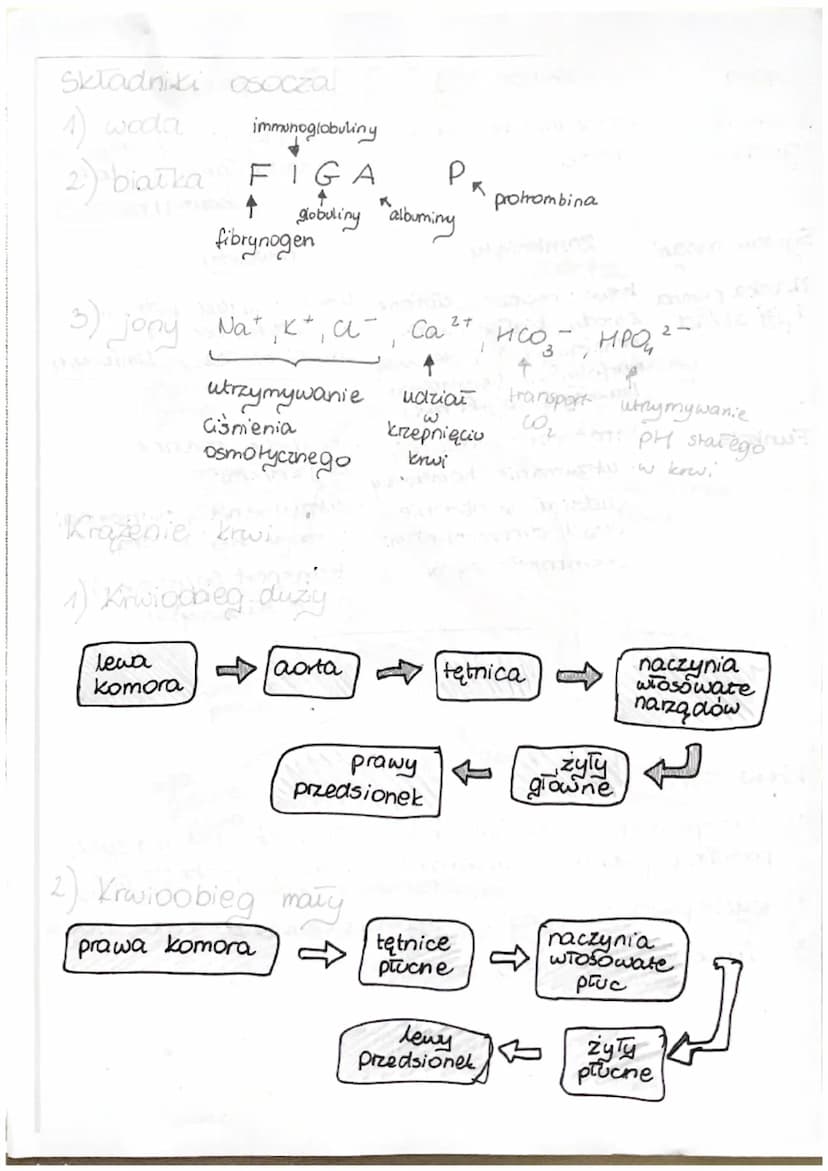 Składniki osocza
1) woda
immunoglobuliny
2) białka F I G A P
protrombina
globuliny albuminy
fibrynogen
3) jony Na⁺, K⁺, Cl⁻, Ca²⁺, HCO₃⁻, HPO₄²⁻
utrzymywanie
ciśnienia
osmotycznego
udział
w
krzepnięciu
krwi
transport
CO₂
utrzymywanie
pH stałego
w krwi
Krążenie krwi
1) Krwiobieg duży
lewa
komora
aorta
tętnica
naczynia
włosowate
narządów
żyły
główne
prawy
przedsionek
2) Krwioobieg mały
prawa komora
tętnice
płucne
naczynia
włosowate
płuc
żyły
płucne
lewy
przedsionek